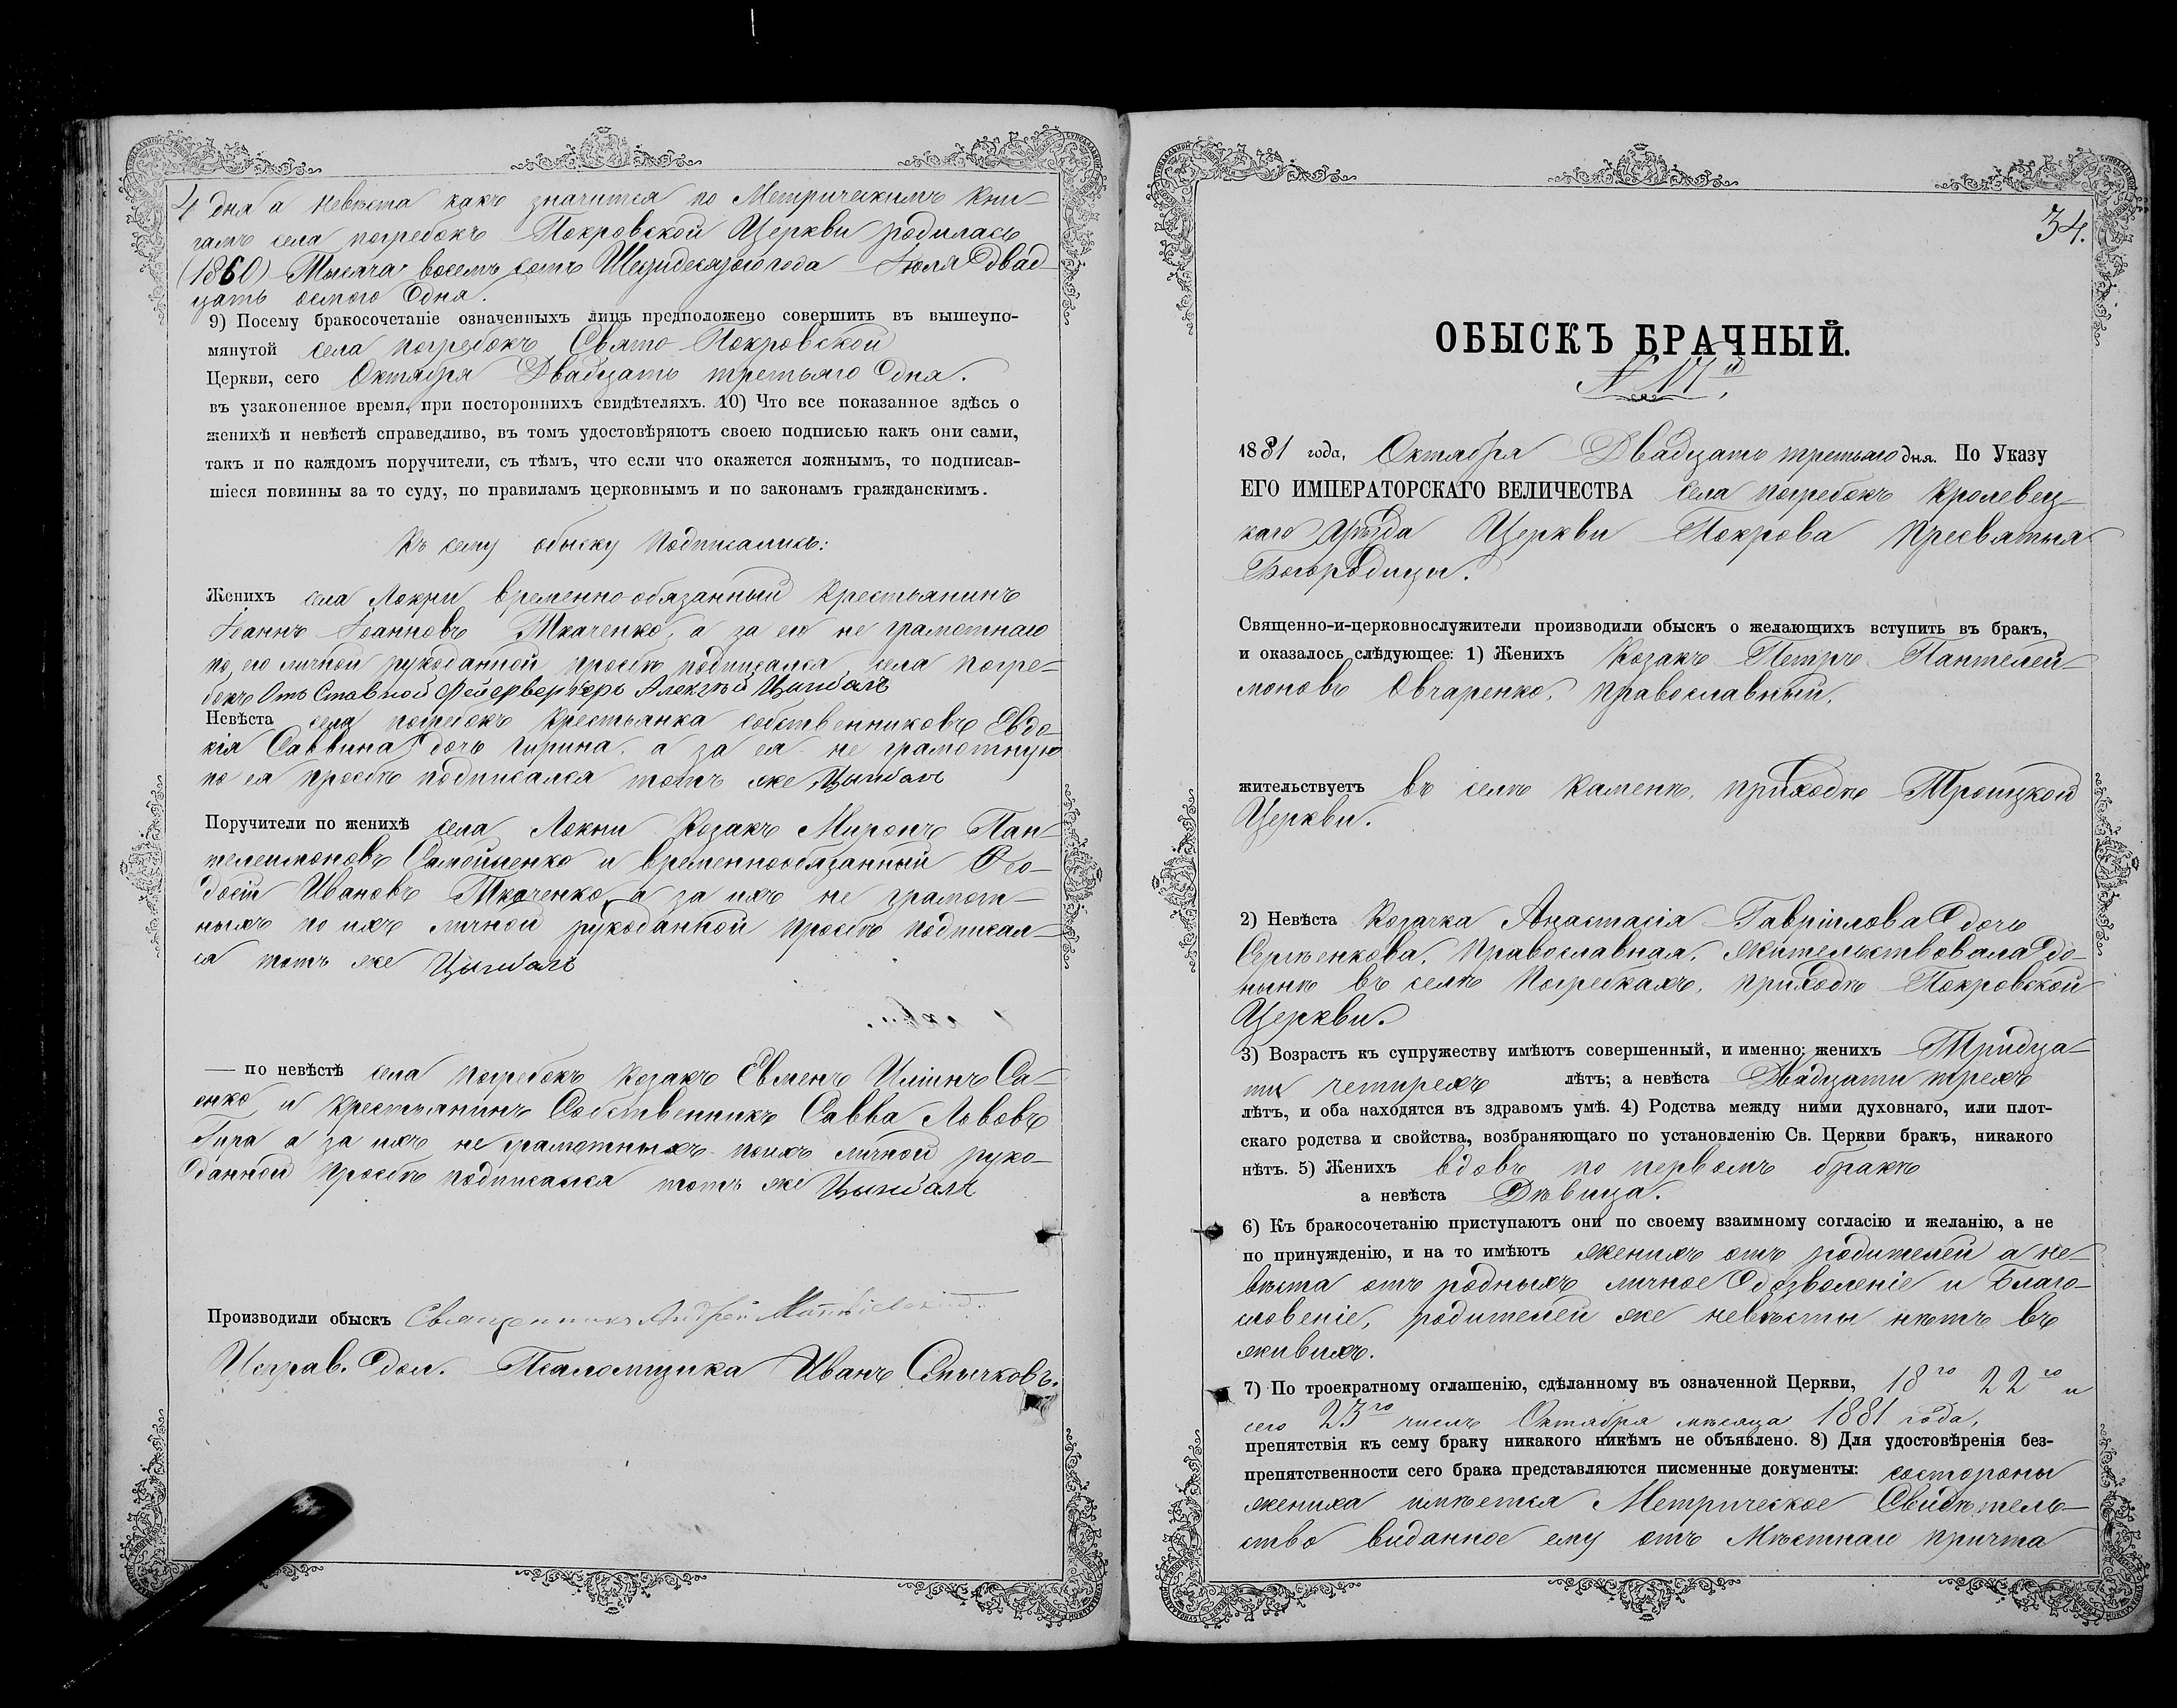 4 дня а невѣста какъ значится по Метрическимъ Кни-
гамъ села погребокъ Покровской Церкви родилась
(1860) Тысяча восемъ сотъ Шестдесятого года Іюля двад-
цать осмого дня.
9) Посему бракосочетаніе означенныхъ лицъ предположено совершить въ вышеупо-
мянутой села погребокъ Свято-Покровской
Церкви, сего Октября Двадцать третьяго дня.
въ узаконенное время, при постороннихъ свидѣтеляхъ. 10) Что все показанное здѣсь о
женихѣ и невѣстѣ справедливо, въ томъ удостовѣряютъ своею подписью какъ они сами,
такъ и по каждомъ поручители, съ тѣмъ, что если что окажется ложнымъ, то подписав-
шіеся повинны за то суду, по правиламъ церковнымъ и по законамъ гражданскимъ.
Къ сему обыску подписались:
Женихъ села Локни временно-обязанный крестьянинъ
Іоаннъ Іоанновъ Ткаченко, а за его не грамотнаго
по его личной рукоданной прозбѣ подписался села погре-
бокъ Отъ Ставной Фейерверкеръ Алексѣй Цымбалъ
Невѣста села погребокъ крестьянка собственниковъ Евдо-
кія Саввина дочь Гирина, а за ея не грамотную
по ея прозбѣ подписался тотъ же Цымбалъ
Поручители по женихѣ села Локни Козакъ Миронъ Пан-
телеимоновъ Самойленко и временнообязанный Фео-
досій Ивановъ Ткаченко, а за ихъ не грамот-
ныхъ по ихъ личной рукоданной прозбѣ подписал-
ся тотъ же Цымбалъ
— по невѣстѣ села погребокъ козакъ Евменъ Илiинъ Са-
енко и крестьянинъ Собственникъ Савва Львовъ
Гира а за ихъ не грамотныхъ поихъ личной руко-
данной прозбѣ подписался тотъ же Цымбалъ
Производили обыскъ Священникъ Андрей
Исправ. дол. Псаломщика Иванъ Смычковъ.
34.
ОБЫСКЪ БРАЧНЫЙ.
N 17й
1881 года, Октября Двадцать третьяго дня. По Указу
ЕГО ИМПЕРАТОРСКАГО ВЕЛИЧЕСТВА села погребокъ Кролевец-
каго Уѣзда Церкви Покрова Пресвятыя
Богородицы.
Священно-и-церковнослужители производили обыскъ о желающихъ вступить въ бракъ,
и оказалось слѣдующее: 1) Женихъ Козакъ Петръ Пантелей-
моновъ Овчаренко, православный,
жительствуетъ въ селѣ Каменѣ, приходѣ Троицкой
Церкви.
2) Невѣста Козачка Анастасія Гавріилова дочь
Сергѣенкова, православная, жительствовала до-
нынѣ въ селѣ Погребкахъ, приходѣ Покровской
Церкви.
3) Возрастъ къ супружеству имѣютъ совершенный, и именно: женихъ Тридца-
ти четырехъ лѣтъ; а невѣста Двадцати трехъ
лѣтъ, и оба находятся въ здравомъ умѣ. 4) Родства между ними духовнаго, или плот-
скаго родства и свойства, возбраняющаго по установленію Св. Церкви бракъ, никакого
нѣтъ. 5) Женихъ вдовъ по первомъ бракѣ
а невѣста Дѣвица.
6) Къ бракосочетанію приступаютъ они по своему взаимному согласію и желанію, а не
по принужденію, и на то имѣютъ женихъ отъ родителей а не-
вѣста отъ родныхъ личное дозволеніе и Благо-
словеніе, родителей же невѣсты нѣтъ въ
живыхъ.
7) По троекратному оглашенію, сдѣланному въ означенной Церкви, 18го 22го и
сего 23го числъ Октября мѣсяца 1881 года,
препятствія къ сему браку никакого никѣмъ не объявлено. 8) Для удостовѣренія без-
препятственности сего брака представляются писменные документы: состороны
жениха имѣется Метрическое Свидѣтель-
ство виданное ему отъ Мѣстнаго причта